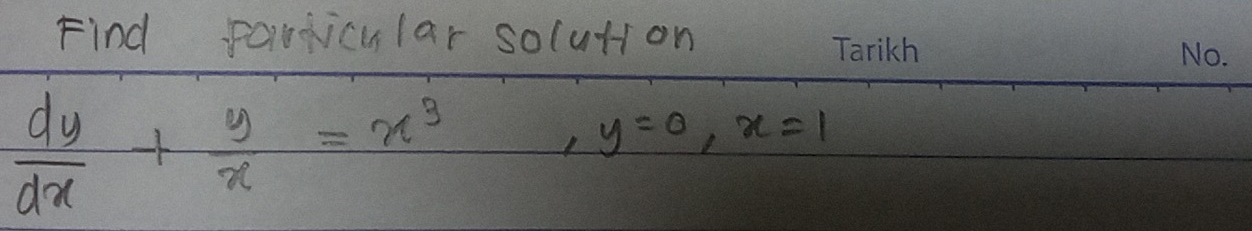 Find particular solution Tarikh No.
dy/dx + y/x = x³ , y=0, x=1